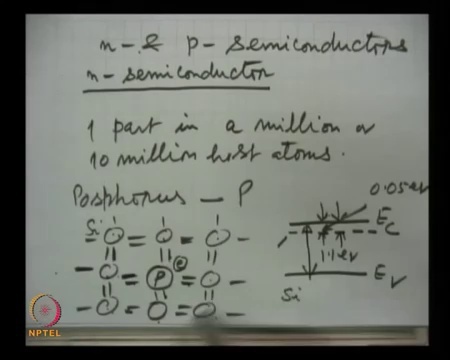 n- & p- semiconductors
n- semiconductor
1 part in a million or
10 million host atoms.
Posphorus — P
0.05 eV
Si
EC
P
e
1.1 eV
Si
EV
NPTEL